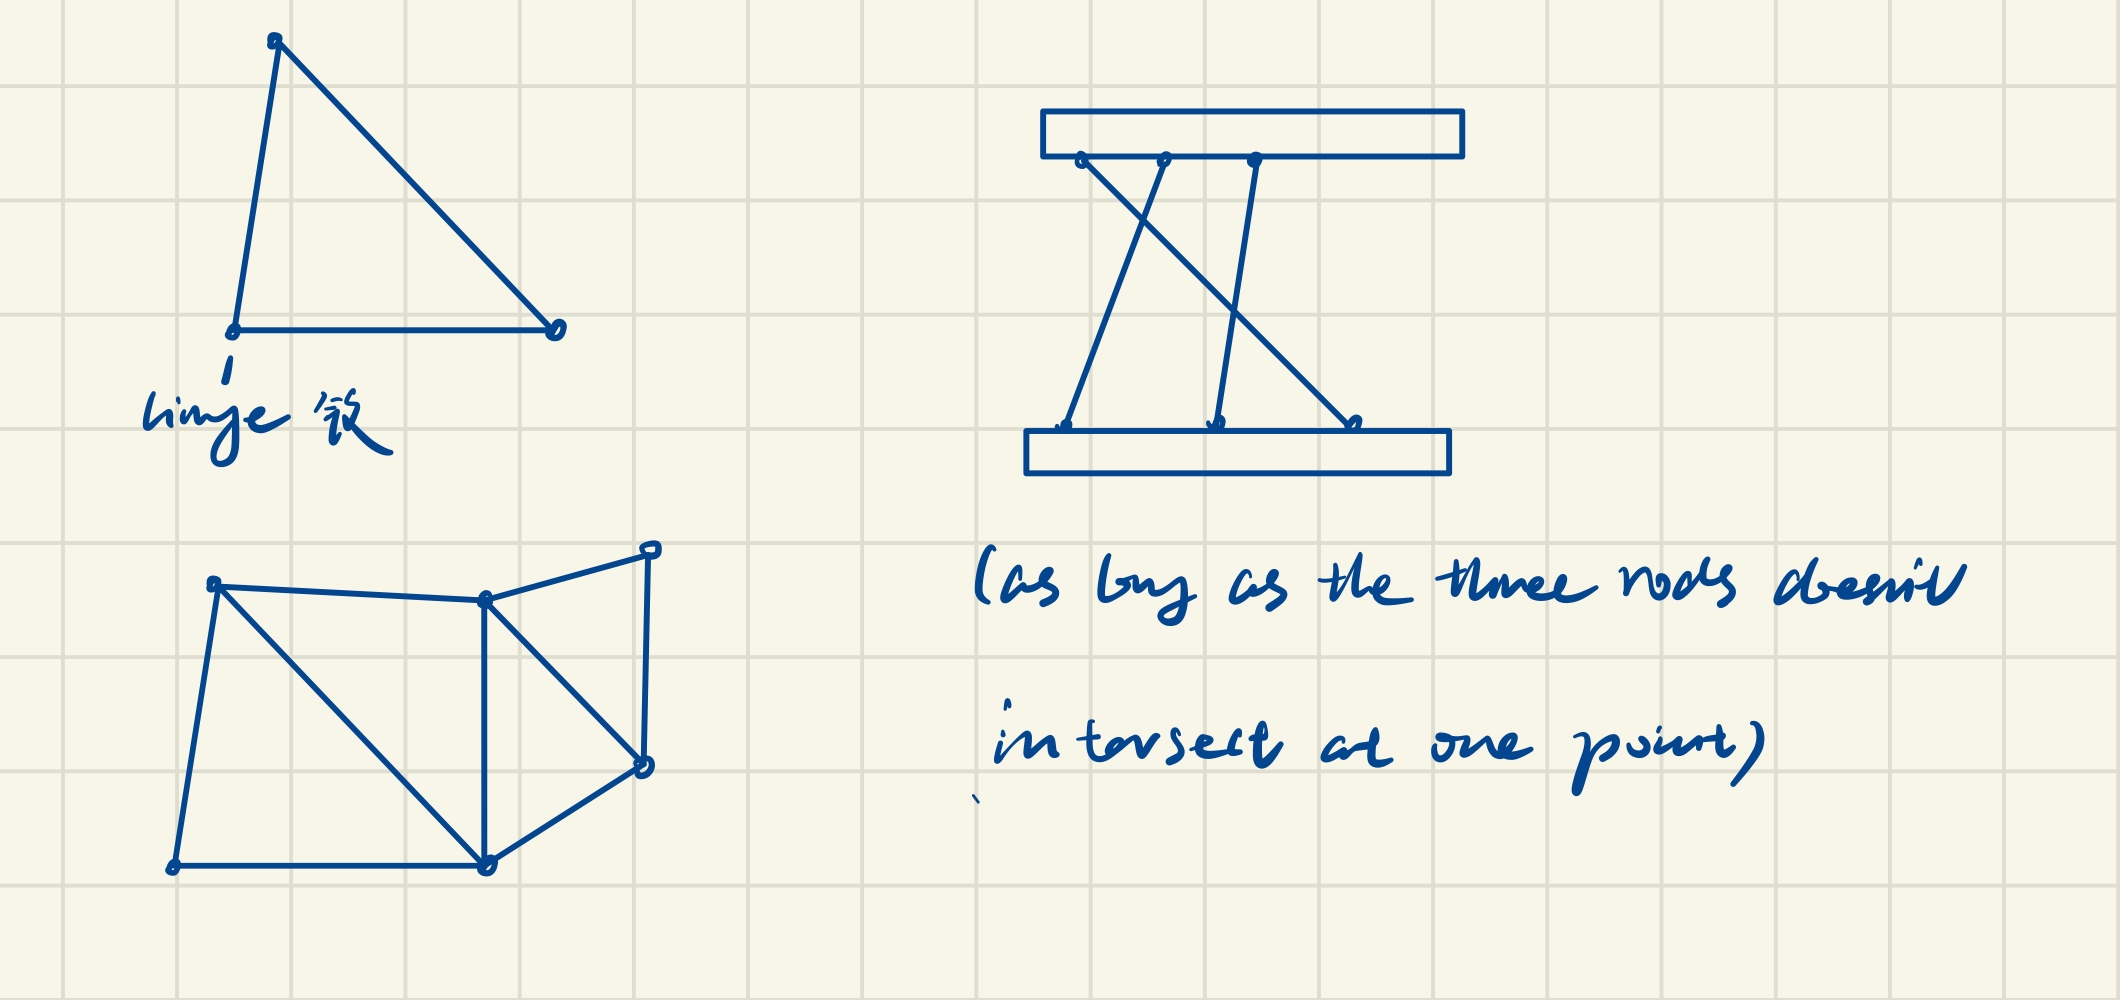 hinge
(as long as the three rods doesn't
intersect at one point)